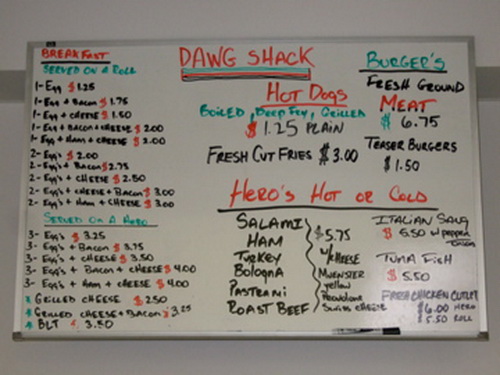 DAWG SHACK
BREAKFAST
SERVED ON A ROLL
1- Egg $1.25
1- Egg + Bacon $1.75
1- Egg + CHEESE $1.50
1- Egg + Bacon + CHEESE $2.00
1- Egg + Ham + CHEESE $2.00
2- Egg's $2.00
2- Egg's + Bacon $2.75
2- Egg's + CHEESE $2.50
2- Egg's + CHEESE + Bacon $3.00
2- Egg's + Ham + CHEESE $3.00
SERVED ON A HERO
3- Egg's $3.25
3- Egg's + Bacon $3.75
3- Egg's + CHEESE $3.50
3- Egg's + Bacon + CHEESE $4.00
3- Egg's + Ham + CHEESE $4.00
* GRILLED CHEESE $2.50
* GRILLED CHEESE + BACON $3.25
* BLT $3.50
HOT DOGS
BOILED, DEEP FRY, GRILLED
$1.25 PLAIN
FRESH CUT FRIES $3.00
BURGER'S
FRESH GROUND
MEAT
$6.75
TEASER BURGERS
$1.50
HERO'S HOT OR COLD
SALAMI
HAM
TURKEY
Bologna
PASTRAMI
ROAST BEEF
$5.75
W/CHEESE
MUENSTER
yellow
Provolone
Swiss CHEESE
ITALIAN SAUG
$6.50 w/pepper
onion
TUNA FISH
$5.50
FRESH CHICKEN CUTLET
$6.00 HERO
$5.50 ROLL